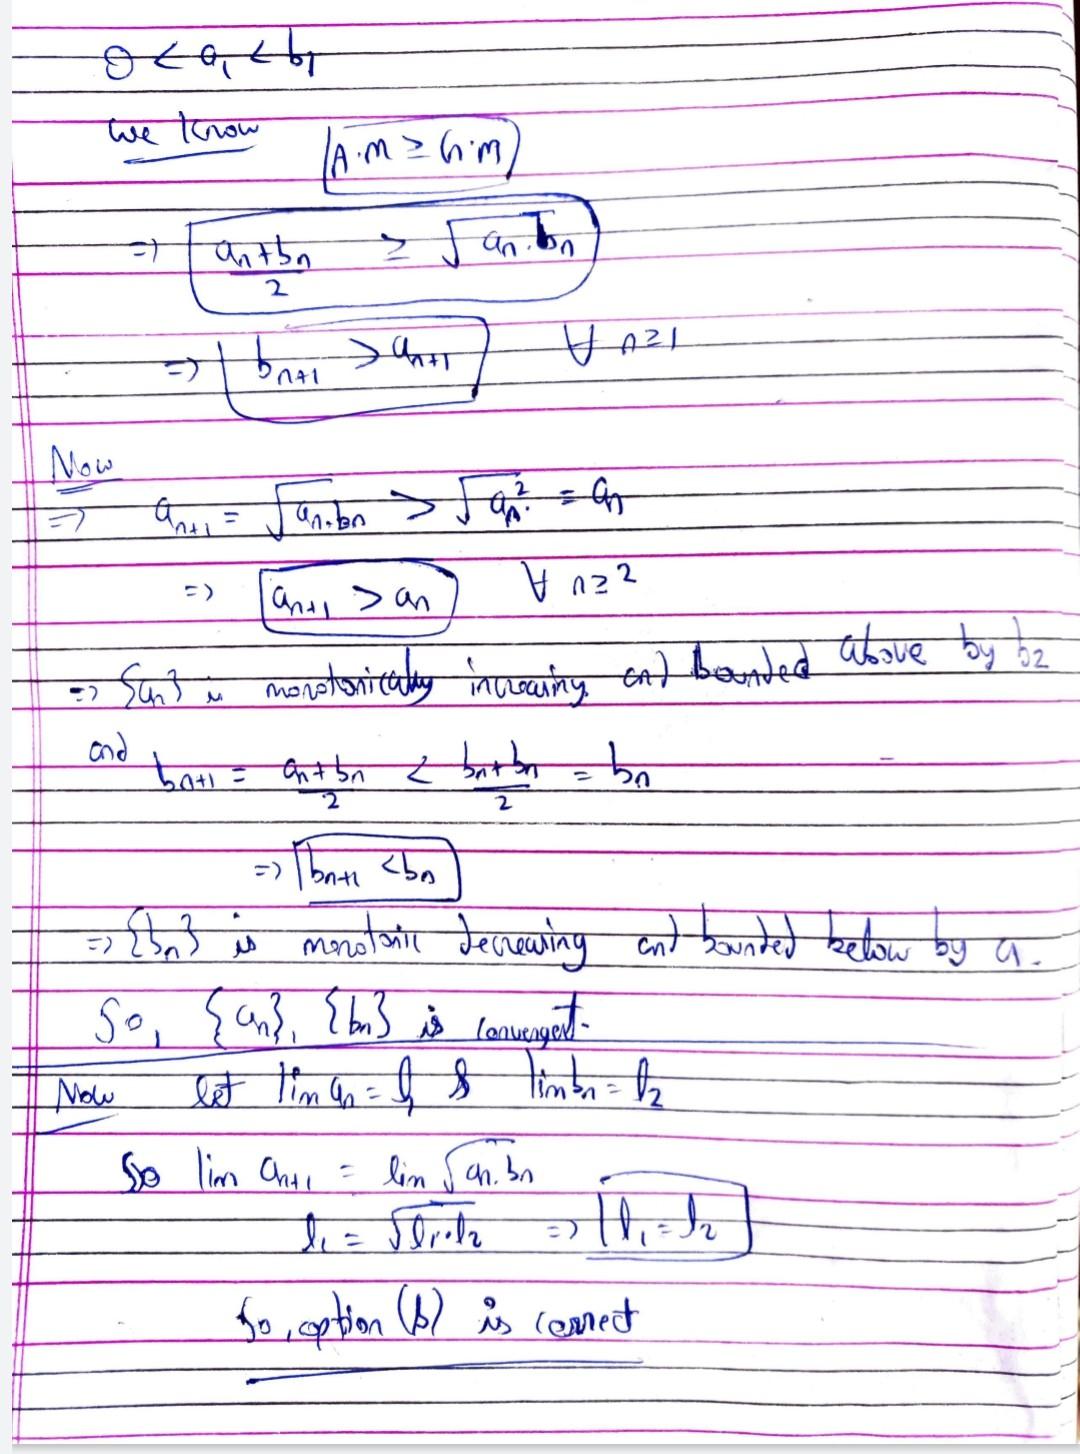 0 < a₁ < b₁
We know A.M ≥ G.M
=> (aₙ+bₙ)/2 ≥ √(aₙ.bₙ)
=> bₙ₊₁ > aₙ₊₁ ∀ n≥1
Now
=> aₙ₊₁ = √(aₙ.bₙ) > √(aₙ²) = aₙ
=> aₙ₊₁ > aₙ ∀ n≥2
=> {aₙ} is monotonically increasing and bounded above by b₂
and bₙ₊₁ = (aₙ+bₙ)/2 < (bₙ+bₙ)/2 = bₙ
=> bₙ₊₁ < bₙ
=> {bₙ} is monotonic decreasing and bounded below by a.
So, {aₙ}, {bₙ} is convergent.
Now let lim aₙ = l₁ & lim bₙ = l₂
So lim aₙ₊₁ = lim √(aₙ.bₙ)
l₁ = √(l₁.l₂) => l₁ = l₂
So, option (b) is correct